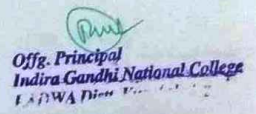 Offg. Principal
Indira Gandhi National College
LADWA Distt.